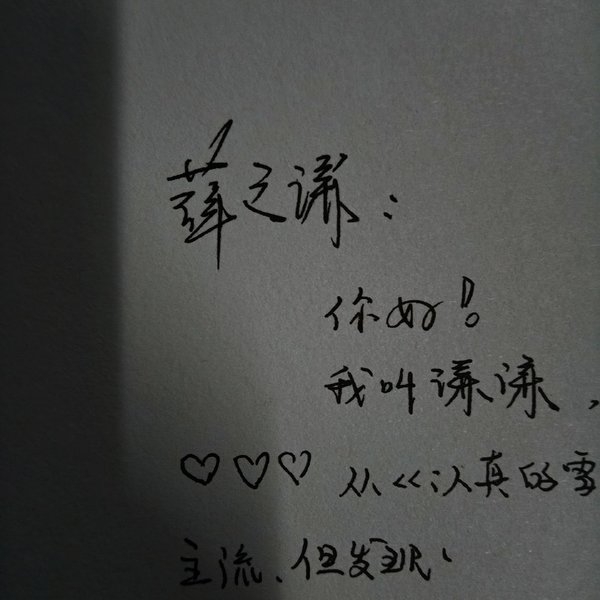 薛之谦：
你好！
我叫谦谦，
♡♡♡ 从《认真的雪
主流、但发现